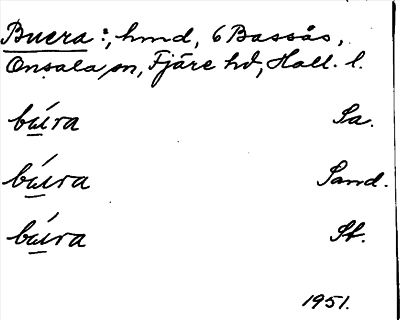 Buera :, hmd, 6 Bassås,
Onsala sn, Fjäre hd, Hall. l.
búra Sa.
búra Sand.
búra St.
1951.